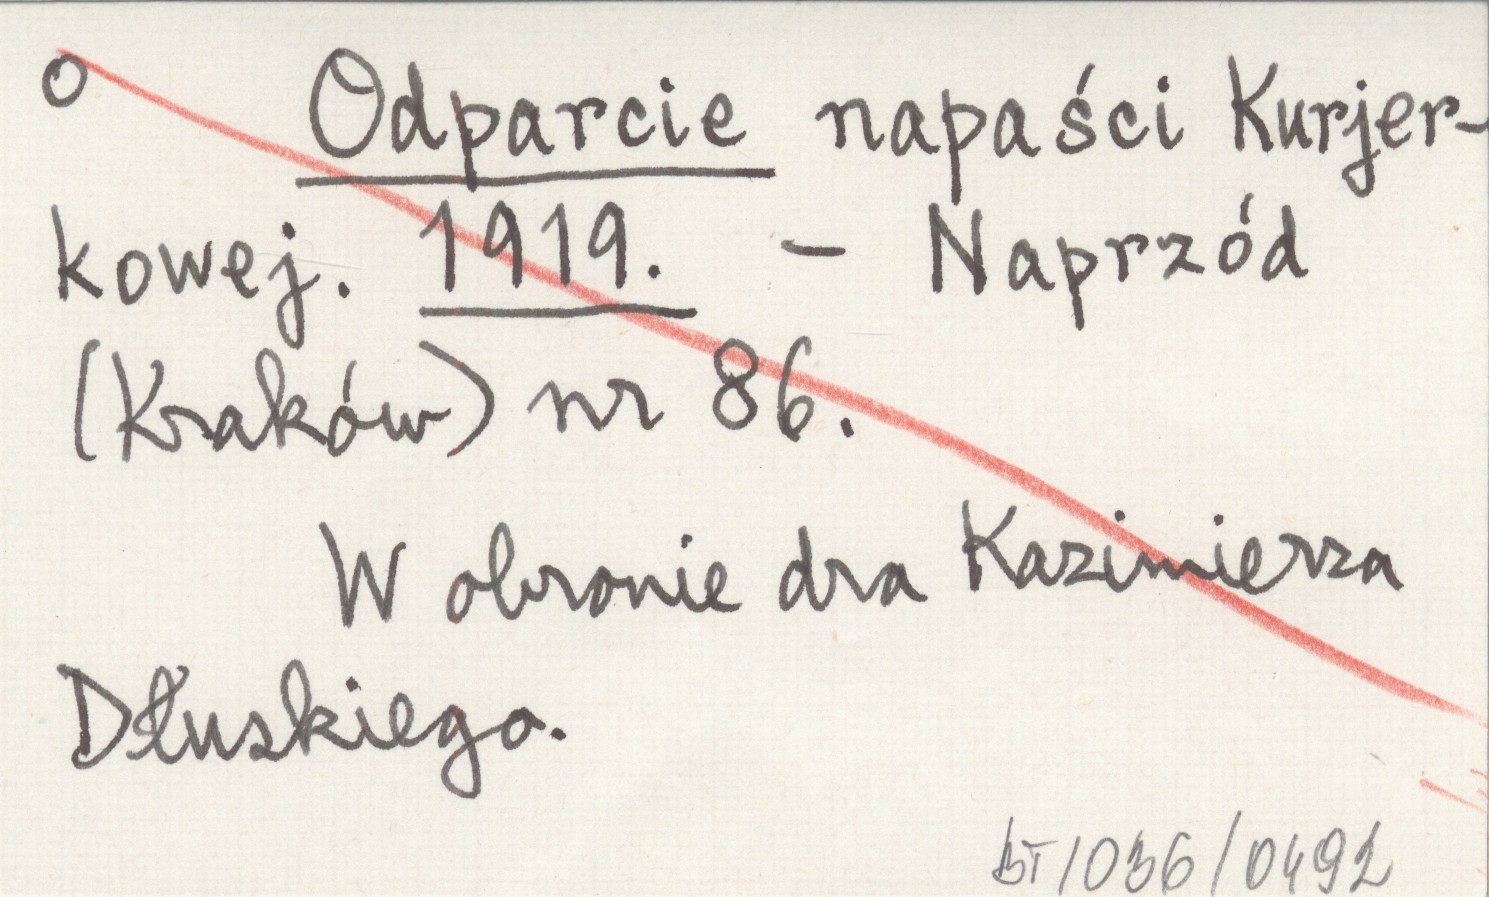 o Odparcie napaści Kurjer-
kowej. 1919. – Naprzód
(Kraków) nr 86.
W obronie dra Kazimierza
Dłuskiego.
BT/036/0492